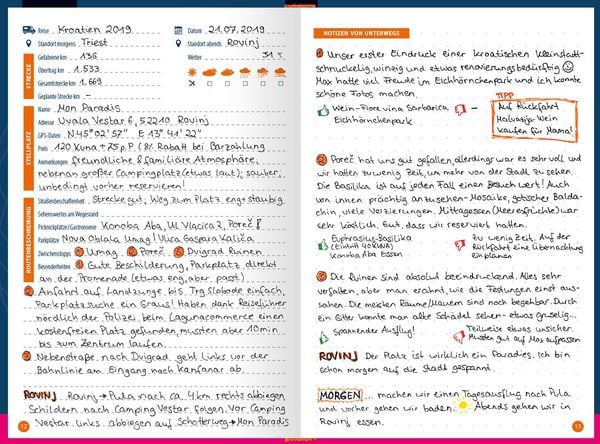 Reise Kroatien 2019
Datum 21.07.2019
Standort morgens Triest
Standort abends Rovinj
Gefahrene km 136
Wetter 31°C
STRECKE
Übertrag km 1.533
Gesamtstrecke km 1.669
Geplante Strecke km -
STELLPLATZ
Name Mon Paradis
Adresse Uvala Vestar 6, 52210 Rovinj
GPS-Daten N 45° 02' 57" E 13° 41' 22"
Preis 120 Kuna + 75 p.P. (8% Rabatt bei Barzahlung
Anmerkungen freundliche & familiäre Atmosphäre,
nebenan großer Campingplatz (etwas laut); sauber;
unbedingt vorher reservieren!
ROUTENBESCHREIBUNG
Straßenbeschaffenheit Strecke gut, Weg zum Platz eng + staubig
Sehenswertes am Wegesrand
Picknickplätze/Gastronomie Konoba Aba, Ul Vlacica 2, Poreč
Parkplätze Nova Obala Umag! Ulica Gaspara Kalića
Zwischenstopps 1 Umag 2 Poreč 3 Dvigrad Ruinen
Besonderheiten 1 Gute Beschilderung, Parkplatz direkt
an der Promenade (etwas eng, aber passt)
2 Anfahrt auf Landzunge bis Trg Slobode einfach,
Parkplatzsuche ein Graus! Haben dank Reiseführer
nördlich der Polizei beim Lagunacommerce einen
kostenfreien Platz gefunden, mussten aber 10min
bis zum Zentrum laufen.
3 Nebenstraße nach Dvigrad geht links vor der
Bahnlinie am Eingang nach Kanfanar ab.
ROVINJ Rovinj → Pula nach ca. 4km rechts abbiegen
Schildern nach Camping Vestar folgen. Vor Camping
Vestar links abbiegen auf Schotterweg → Mon Paradis
12
NOTIZEN VON UNTERWEGS
1 Unser erster Eindruck einer kroatischen Kleinstadt -
schnuckelig, winzig und etwas renovierungsbedürftig
Max hatte viel Freude im Eichhörnchenpark und ich konnte
schöne Fotos machen.
TIPP
Wein-Fiore vina Sarbarica
Eichhörnchenpark
Auf Rückfahrt
Malvasija-Wein
kaufen für Mama!
2 Poreč hat uns gut gefallen, allerdings war es sehr voll und
wir hatten zu wenig Zeit, um mehr von der Stadt zu sehen.
Die Basilika ist auf jeden Fall einen Besuch wert! Auch
von innen prächtig anzusehen - Mosaike, gotischer Balda-
chin, viele Verzierungen. Mittagessen (Meeresfrüchte) war
sehr köstlich. Gut, dass wir reserviert hatten.
Euphrasius-Basilika
(Eintritt 40 KUNA)
Konoba Aba Essen
Zu wenig Zeit. Auf der
Rückfahrt eine Übernachtung
einplanen
3 Die Ruinen sind absolut beeindruckend. Alles sehr
verfallen, aber man erahnt, wie die Festungen einst aus-
sahen. Die meisten Räume/Mauern sind noch begehbar. Durch
ein Gitter konnte man alte Schädel sehen - etwas gruselig...
Spannender Ausflug!
Teilweise etwas unsicher.
Mussten gut auf Max aufpassen
ROVINJ Der Platz ist wirklich ein Paradies. Ich bin
schon morgen auf die Stadt gespannt.
MORGEN ... machen wir einen Tagesausflug nach Pula
und vorher gehen wir baden. Abends gehen wir in
Rovinj essen.
13